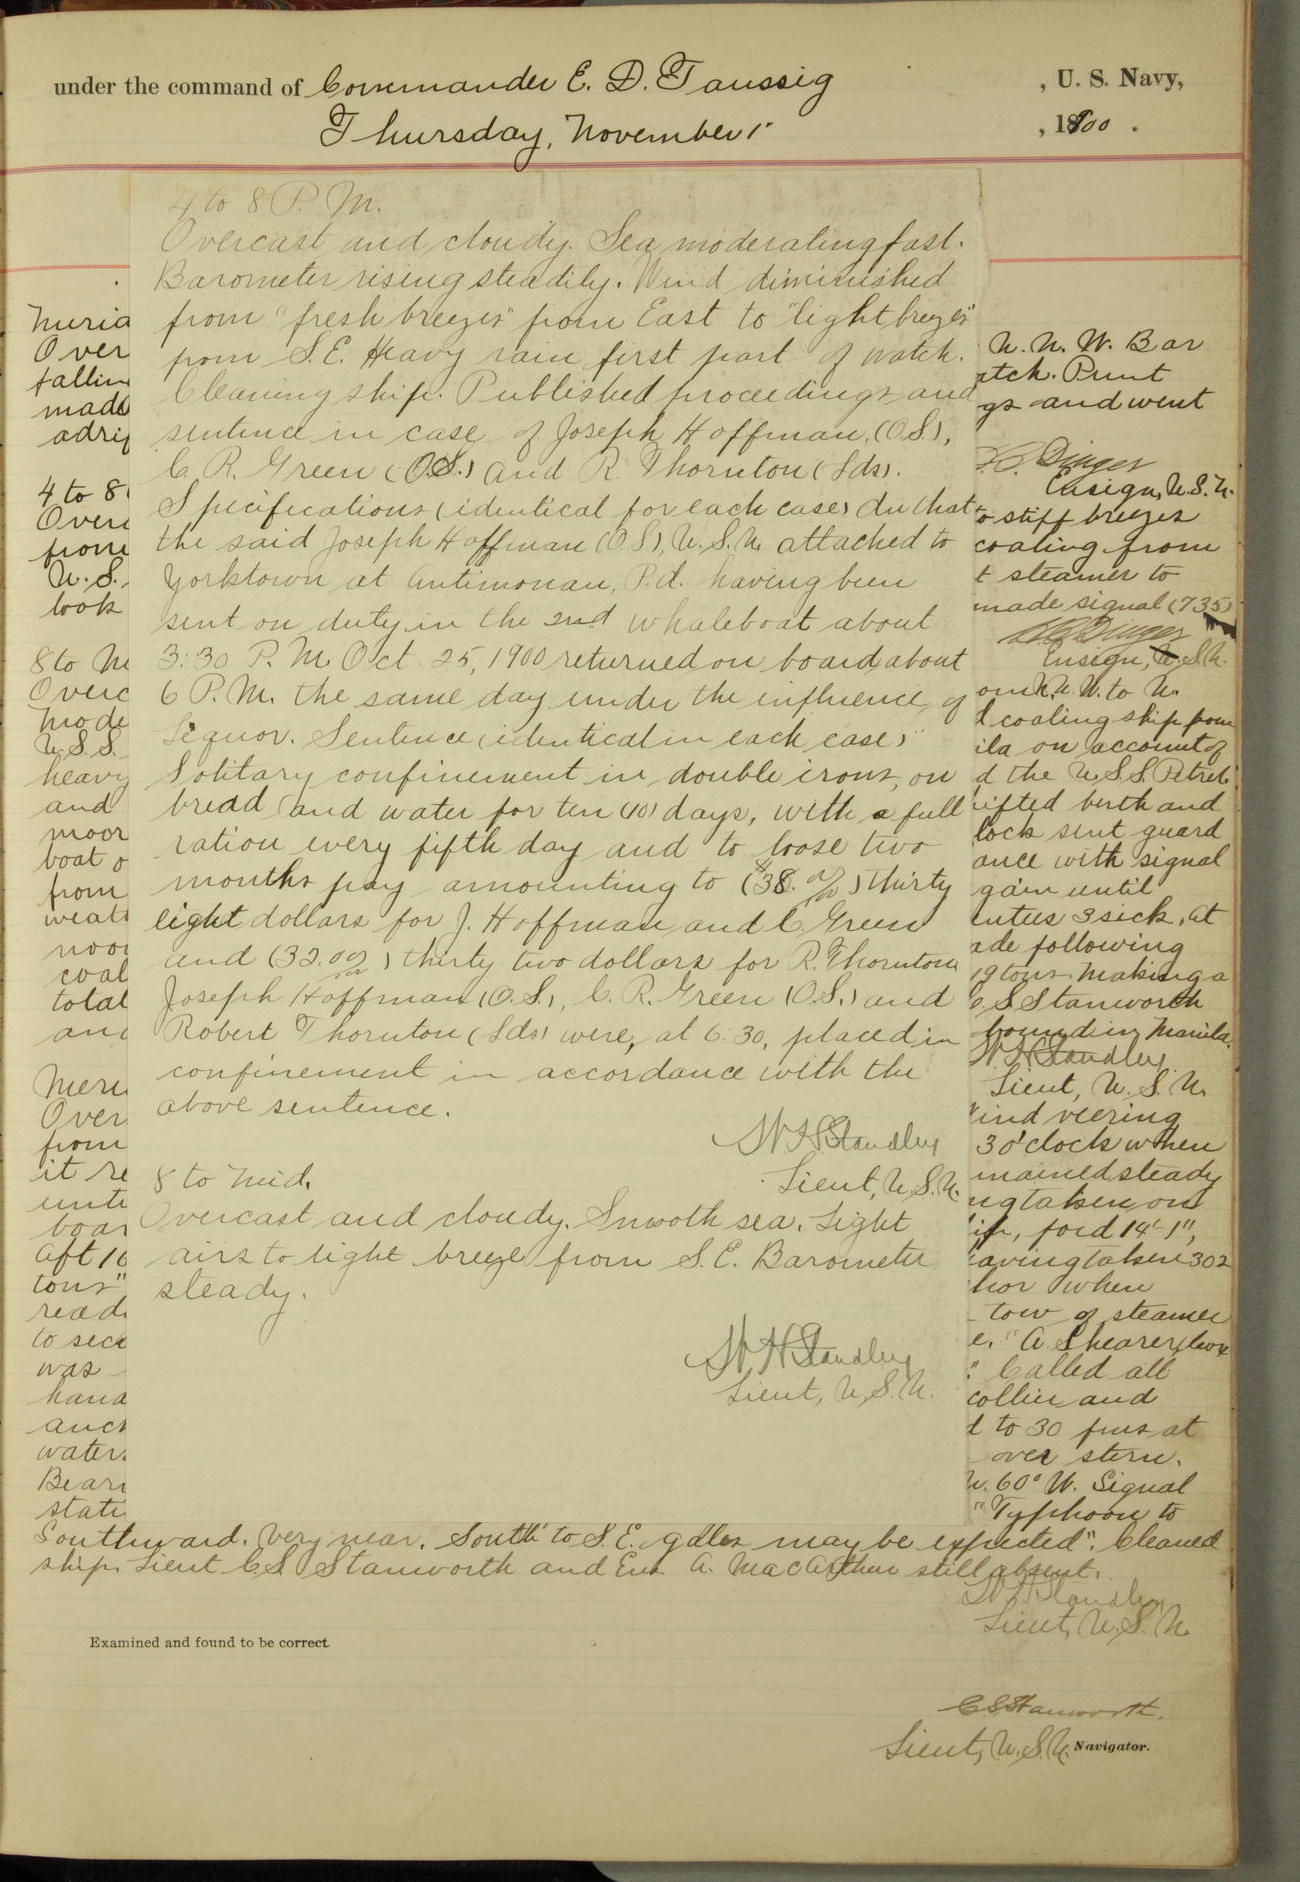 under the command of Commander E. D. Taussig , U. S. Navy,
Thursday, November 1st , 1900 .
4 to 8 P. M.
Overcast and cloudy. Sea moderating fast.
Barometer rising steadily. Wind diminished
from "fresh breezes" from East to "light breezes"
from S.E. Heavy rain first part of watch.
Cleaning ship. Published proceedings and
sentence in case of Joseph Hoffman, (O.S.),
C. R. Green (O.S.) and R. Thornton (Lds).
Specifications (identical for each case) In that
the said Joseph Hoffman (O.S.), U.S.N. attached to
Yorktown at Antimonan, P.I. having been
sent on duty in the 2nd whaleboat about
3:30 P.M. Oct. 25, 1900 returned on board about
6 P.M. the same day under the influence of
Liquor. Sentence (identical in each case)"
Solitary confinement in double irons, on
bread and water for ten (10) days, with a full
ration every fifth day and to loose two
months pay amounting to ($38. 00/100) thirty
eight dollars for J. Hoffman and C. Green
and (32.00/100) thirty two dollars for R. Thornton
Joseph Hoffman (O.S.), C. R. Green (O.S.) and
Robert Thornton (Lds) were, at 6:30, placed in
confinement in accordance with the
above sentence.
W H Standley
Lieut, U.S.N.
8 to Mid.
Overcast and cloudy. Smooth sea. Light
airs to light breeze from S.E. Barometer
steady.
W H Standley
Lieut, U.S.N.
Meria
Over
fallin
made
adrif
4 to 8
Over
from
U.S.
look
8 to M
Overc
Mode
U.S.S.
heavy
and
moor
boat o
from
weat
noon
coal
total
and
Meri
Over
from
it re
unti
boar
aft 16
tons"
read
to sec
was
hand
anch
water.
Bear
stati
N. N. W. Bar
atch. Punt
gs and went
Dinger
Ensign, U.S.N.
to stiff breezes
coaling from
t steamer to
made signal (735)
Dinger
Ensign, U.S.N.
om N.N.W. to N.
d coaling ship from
ila on account of
d the U.S.S. Petrel
hifted berth and
lock sent guard
ance with signal
gain until
inutes 3 sick. At
ade following
19 tons. Making a
C S Stanworth
bound in Manila.
W H Standley
Lieut, U.S.N.
Wind veering
30 o'clock when
mained steady
ng taken out
in, for'd 14'-1",
aving taken 302
hor when
tow of steamer
e. "A. Shearer
" Called all
collier and
d to 30 fms at
over stern.
N. 60° W. Signal
"Typhoon to
Southward. Very near. South to S.E. gales may be expected". Cleaned
ship. Lieut C S Stanworth and Ens A. MacArthur still absent.
W H Standley
Lieut, U.S.N.
Examined and found to be correct.
C S Stanworth.
Lieut, U.S.N. Navigator.